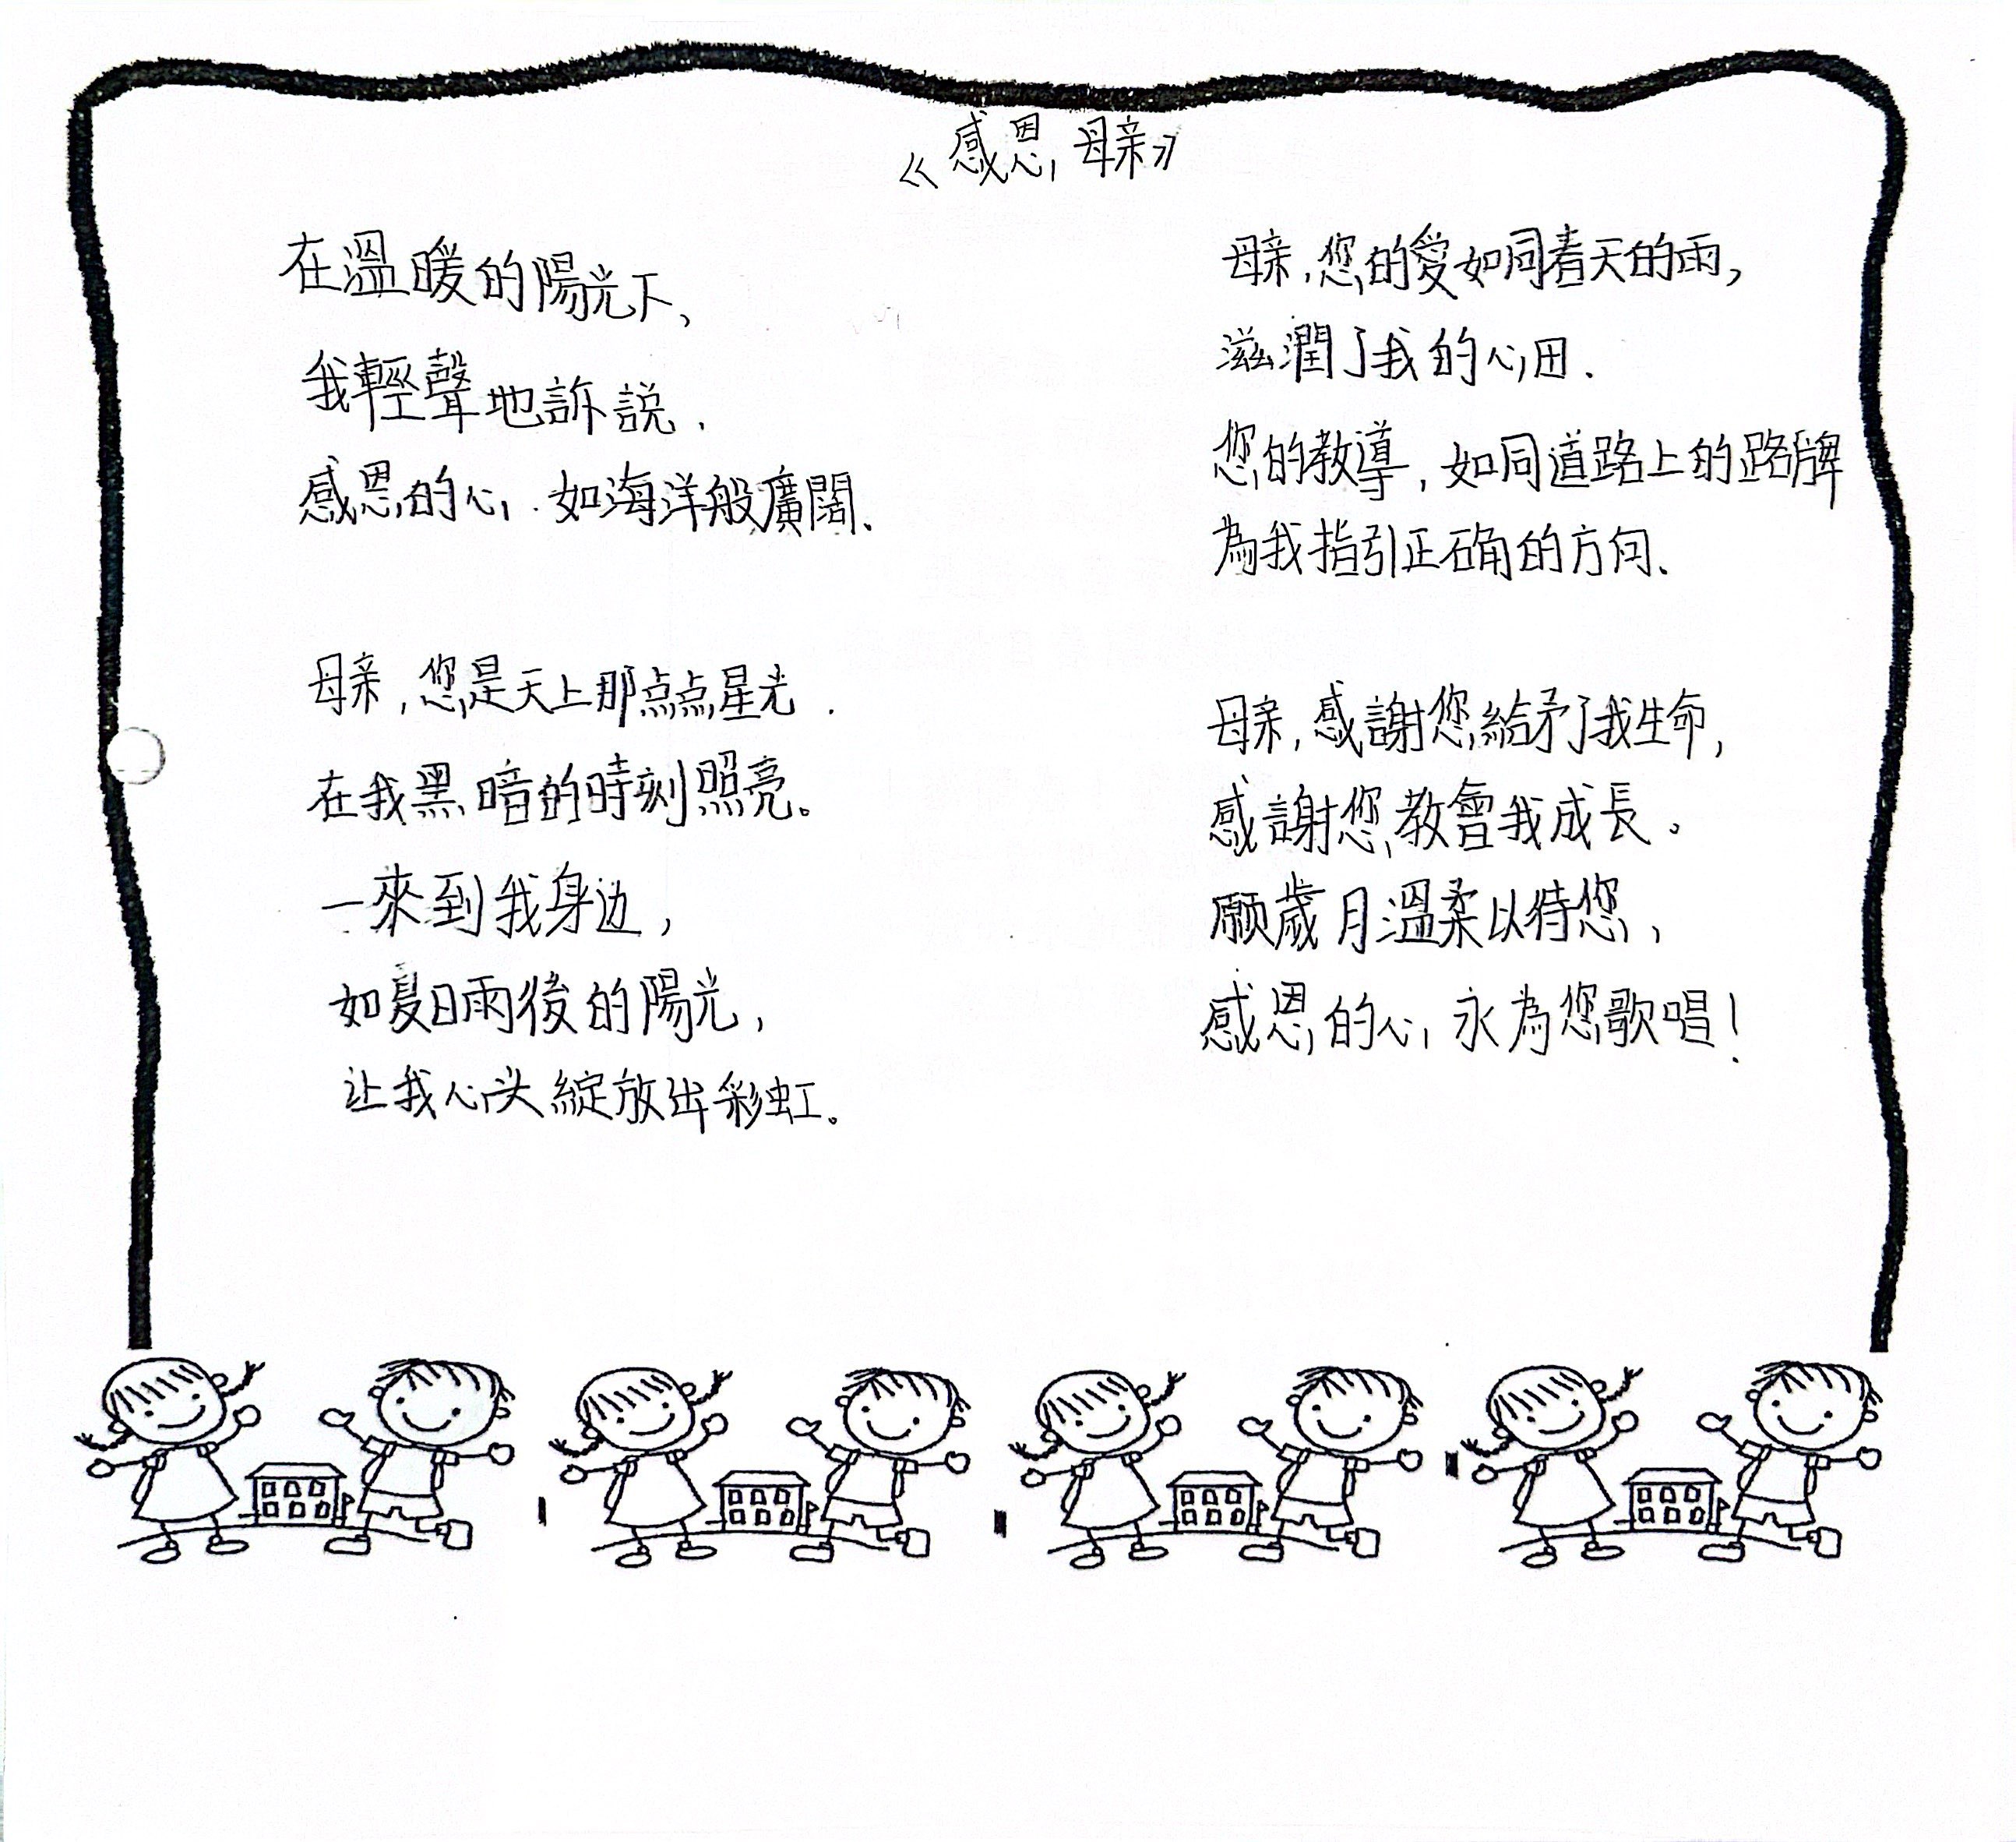 《感恩母亲》
在溫暖的陽光下、
我輕聲地訴説.
感恩的心.如海洋般廣闊、
母亲,您是天上那点点星光.
在我黑暗的時刻照亮。
一來到我身边,
如夏日雨後的陽光,
让我心头綻放出彩虹。
母亲,您的愛如同春天的雨,
滋潤了我的心田.
您的教導,如同道路上的路牌
為我指引正确的方向、
母亲,感謝您給予了我生命,
感謝您教會我成長。
願歲月溫柔以待您,
感恩的心永為您歌唱!